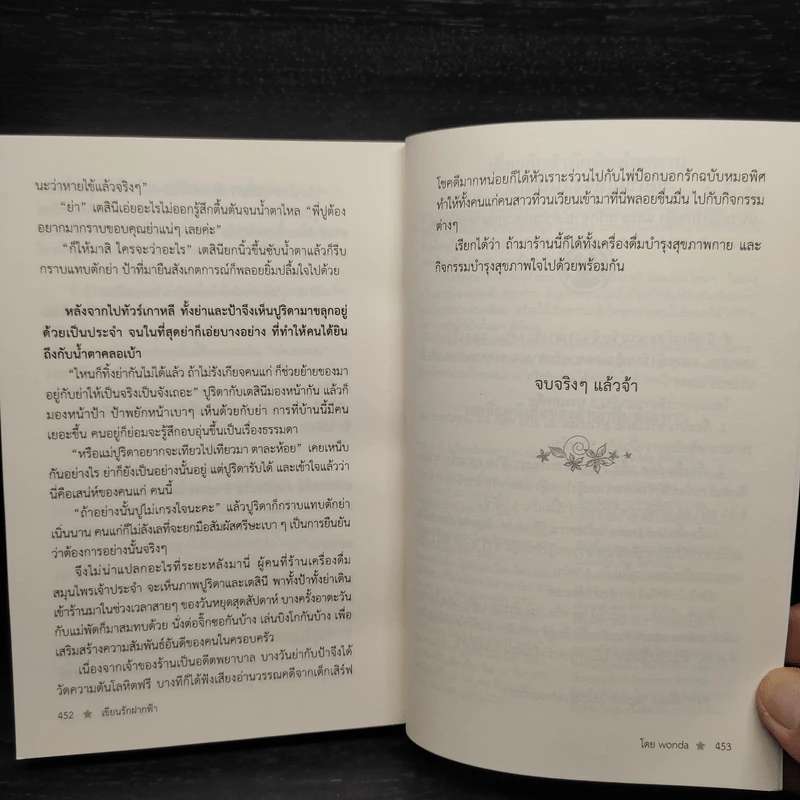 นะว่าหายไข้แล้วจริงๆ”
“ย่า” เตสินีเอ่ยอะไรไม่ออกรู้สึกตื้นตันจนน้ำตาไหล “พี่ปูต้อง
อยากมากราบขอบคุณย่าแน่ๆ เลยค่ะ”
“ก็ให้มาสิ ใครจะว่าอะไร” เตสินียกนิ้วขึ้นซับน้ำตาแล้วก็รีบ
กราบแทบตักย่า ป้าที่มายืนสังเกตการณ์ก็พลอยยิ้มปลื้มใจไปด้วย
หลังจากไปทัวร์เกาหลี ทั้งย่าและป้าจึงเห็นปูริดามาขลุกอยู่
ด้วยเป็นประจำ จนในที่สุดย่าก็เอ่ยบางอย่าง ที่ทำให้คนได้ยิน
ถึงกับน้ำตาคลอเบ้า
“ไหนก็ทิ้งย่ากันไม่ได้แล้ว ถ้าไม่รังเกียจคนแก่ ก็ช่วยย้ายของมา
อยู่กับย่าให้เป็นจริงเป็นจังเถอะ” ปูริดากับเตสินีมองหน้ากัน แล้วก็
มองหน้าป้า ป้าพยักหน้าเบาๆ เห็นด้วยกับย่า การที่บ้านนี้มีคน
เยอะขึ้น คนอยู่ก็ย่อมจะรู้สึกอบอุ่นขึ้นเป็นเรื่องธรรมดา
“หรือแม่ปูริดาอยากจะเทียวไปเทียวมา ตาละห้อย” เคยเหน็บ
กันอย่างไร ย่าก็ยังเป็นอย่างนั้นอยู่ แต่ปูริดารับได้ และเข้าใจแล้วว่า
นี่คือเสน่ห์ของคนแก่ คนนี้
“ถ้าอย่างนั้นปูไม่เกรงใจนะคะ” แล้วปูริดาก็กราบแทบตักย่า
เนิ่นนาน คนแก่ก็ไม่ลังเลที่จะยกมือสัมผัสศรีษะเบา ๆ เป็นการยืนยัน
ว่าต้องการอย่างนั้นจริงๆ
จึงไม่น่าแปลกอะไรที่ระยะหลังมานี่ ผู้คนที่ร้านเครื่องดื่ม
สมุนไพรเจ้าประจำ จะเห็นภาพปูริดาและเตสินี พาทั้งป้าทั้งย่าเดิน
เข้าร้านมาในช่วงเวลาสายๆ ของวันหยุดสุดสัปดาห์ บางครั้งอาตะวัน
กับแม่พัดก็มาสมทบด้วย นั่งต่อจิ๊กซอกันบ้าง เล่นบิงโกกันบ้าง เพื่อ
เสริมสร้างความสัมพันธ์อันดีของคนในครอบครัว
เนื่องจากเจ้าของร้านเป็นอดีตพยาบาล บางวันย่ากับป้าจึงได้
วัดความดันโลหิตฟรี บางทีก็ได้ฟังเสียงอ่านวรรณคดีจากเด็กเสิร์ฟ
452 ★ เขียนรักฝากฟ้า
โชคดีมากหน่อยก็ได้หัวเราะร่วนไปกับไพ่ป๊อกบอกรักฉบับหมอพิศ
ทำให้ทั้งคนแก่คนสาวที่วนเวียนเข้ามาที่นี่พลอยชื่นมื่น ไปกับกิจกรรม
ต่างๆ
เรียกได้ว่า ถ้ามาร้านนี้ก็ได้ทั้งเครื่องดื่มบำรุงสุขภาพกาย และ
กิจกรรมบำรุงสุขภาพใจไปด้วยพร้อมกัน
จบจริงๆ แล้วจ้า
โดย wonda ★ 453